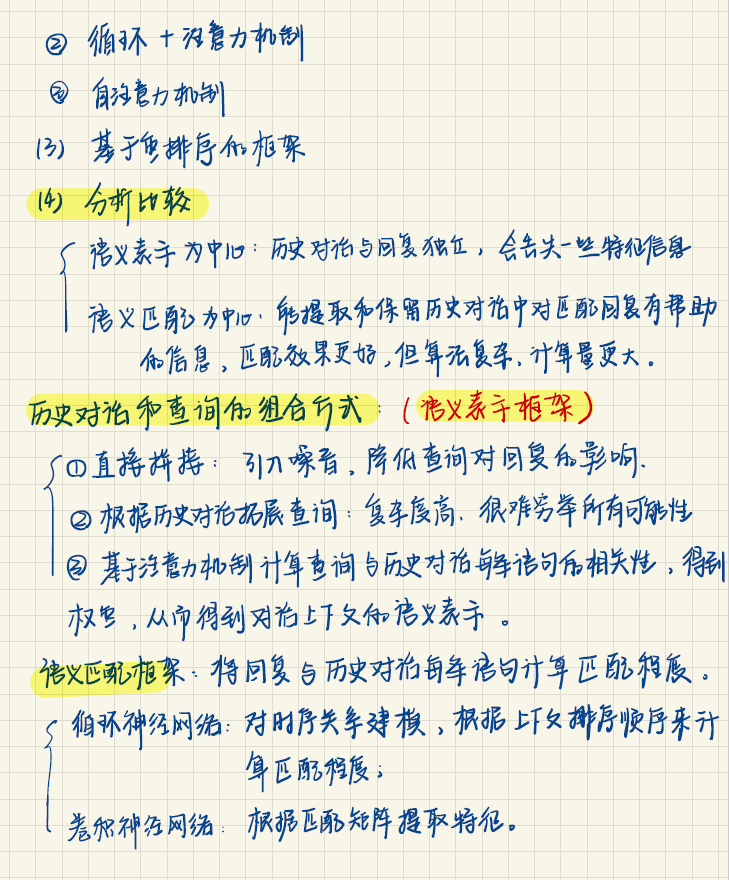 ② 循环 + 注意力机制
③ 自注意力机制
(3) 基于重排序的框架
(4) 分析比较
语义表示为中心：历史对话与回复独立，会丢失一些特征信息
语义匹配为中心：能提取和保留历史对话中对匹配回复有帮助
的信息，匹配效果更好，但算法复杂，计算量更大。
历史对话和查询的组合方式：(语义表示框架)
①直接拼接：引入噪音，降低查询对回复的影响.
②根据历史对话拓展查询：复杂度高，很难穷举所有可能性
③基于注意力机制计算查询与历史对话每条语句的相关性，得到
权重，从而得到对话上下文的语义表示。
语义匹配框架：将回复与历史对话每条语句计算匹配程度。
循环神经网络：对时序关系建模，根据上下文排序顺序来计
算匹配程度；
卷积神经网络：根据匹配矩阵提取特征。